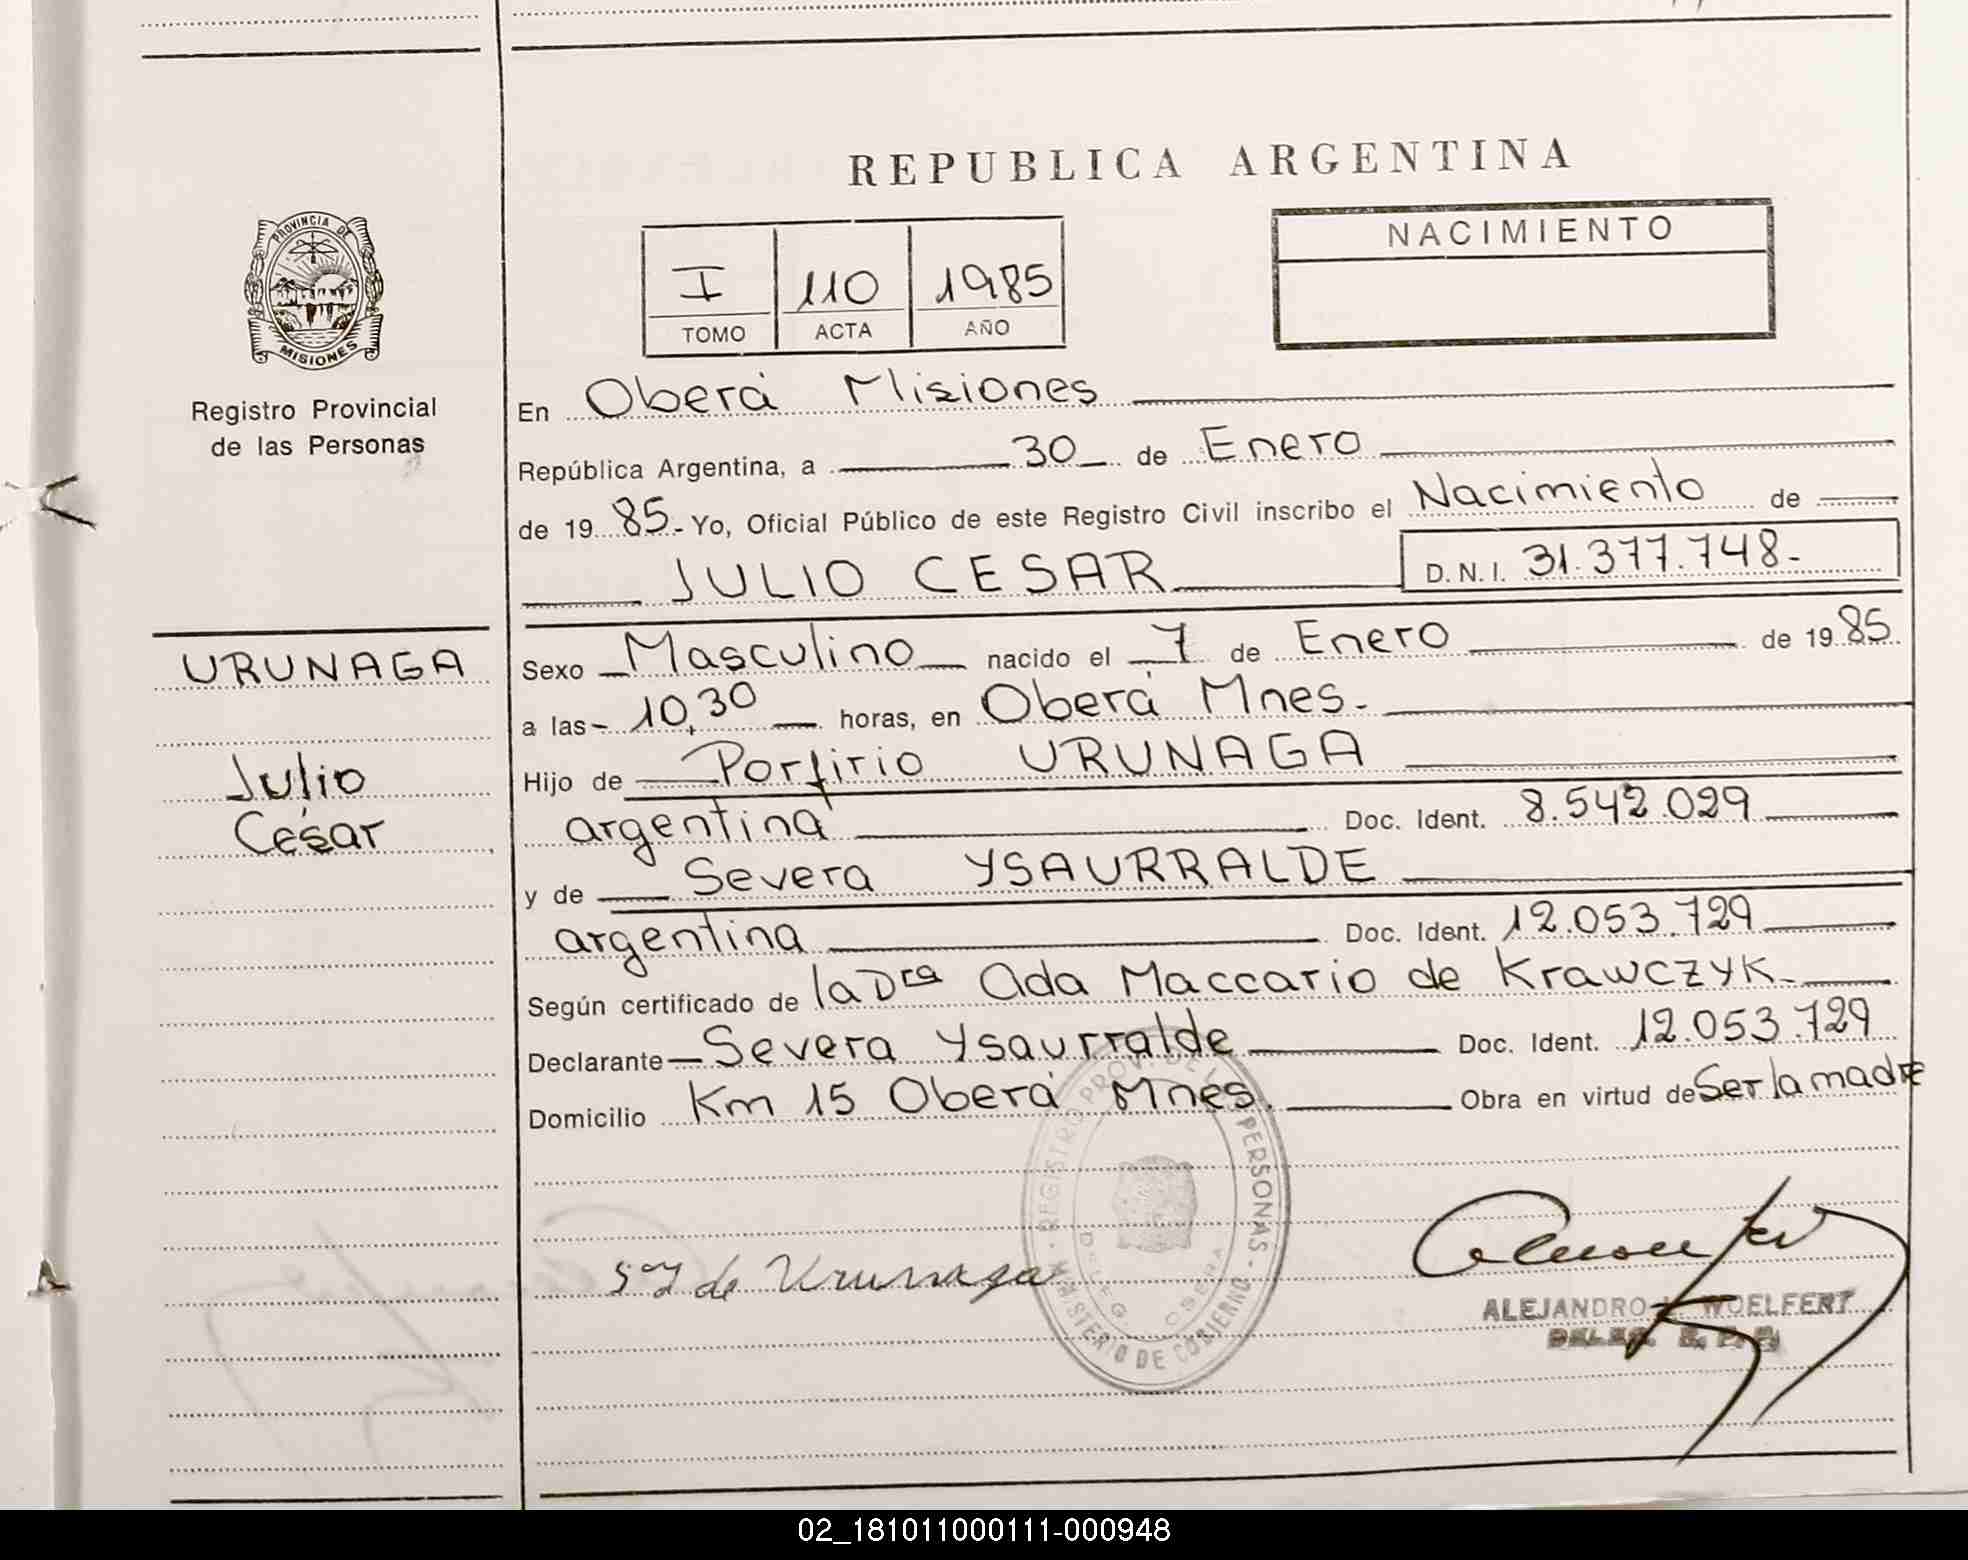 REPUBLICA ARGENTINA
PROVINCIA DE
MISIONES
Registro Provincial
de las Personas
I 110 1985
TOMO ACTA AÑO
NACIMIENTO
En Oberá Misiones
República Argentina, a 30 de Enero
de 19 85.- Yo, Oficial Público de este Registro Civil inscribo el Nacimiento de
JULIO CESAR D.N.I. 31.377.748-
URUNAGA
Julio
César
Sexo Masculino nacido el 7 de Enero de 19 85
a las - 10,30 horas, en Oberá Mnes.-
Hijo de Porfirio URUNAGA
argentina Doc. Ident. 8.542.029
y de Severa YSAURRALDE
argentina Doc. Ident. 12.053.729
Según certificado de la Dra Ada Maccario de Krawczyk-
Declarante Severa Ysaurralde Doc. Ident. 12.053.729
Domicilio Km 15 Oberá Mnes. Obra en virtud de Ser la madre
REGISTRO PROV. DE LAS PERSONAS - MINISTERIO DE GOBIERNO
DELEG. OBERA
SY de Urunaga
ALEJANDRO L. WOELFERT
02_181011000111-000948